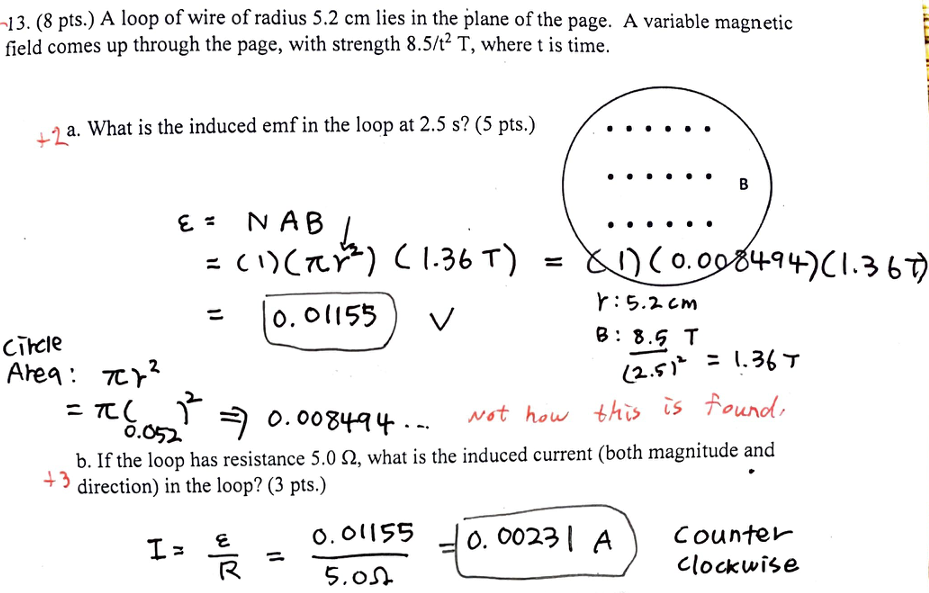 13. (8 pts.) A loop of wire of radius 5.2 cm lies in the plane of the page. A variable magnetic
field comes up through the page, with strength 8.5/t² T, where t is time.
+2 a. What is the induced emf in the loop at 2.5 s? (5 pts.)
B
ε = NAB
= (1)(πr²)(1.36 T) = (1)(0.008494)(1.36T)
= 0.01155 V
r: 5.2 cm
B: 8.5 T
(2.5)² = 1.36 T
Circle
Area: πr²
= π(0.052)² ⇒ 0.008494...
Not how this is found.
b. If the loop has resistance 5.0 Ω, what is the induced current (both magnitude and
+3 direction) in the loop? (3 pts.)
I = ε/R = 0.01155/5.0Ω = 0.00231 A
Counter
clockwise